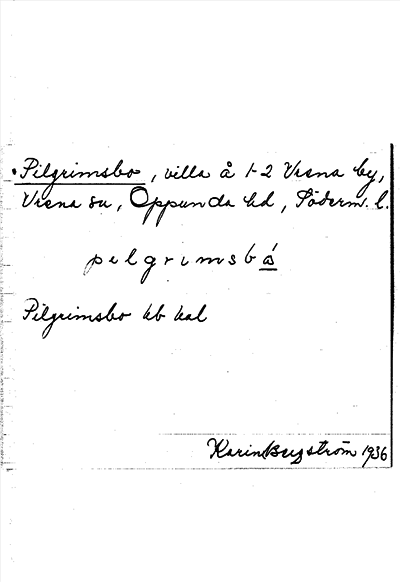 Pilgrimsbo, villa å 1-2 Vrena by,
Vrena sn, Oppunda hd, Söderm. l.
pilgrimsbå
Pilgrimsbo hb kal
Karin Bergström 1936